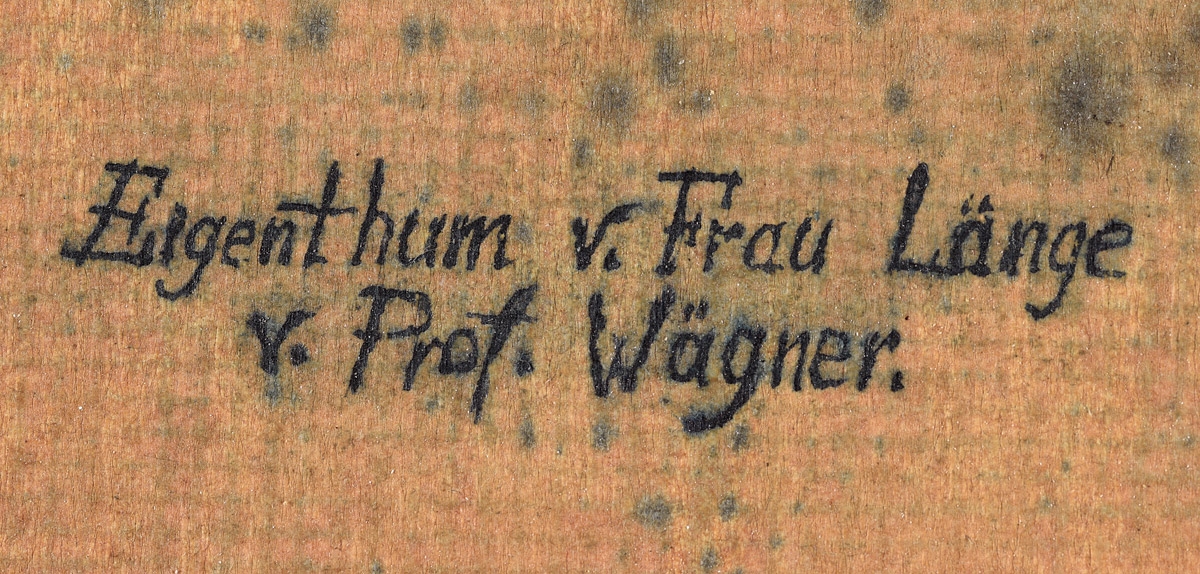 Eigenthum v. Frau Länge
v. Prof. Wägner.